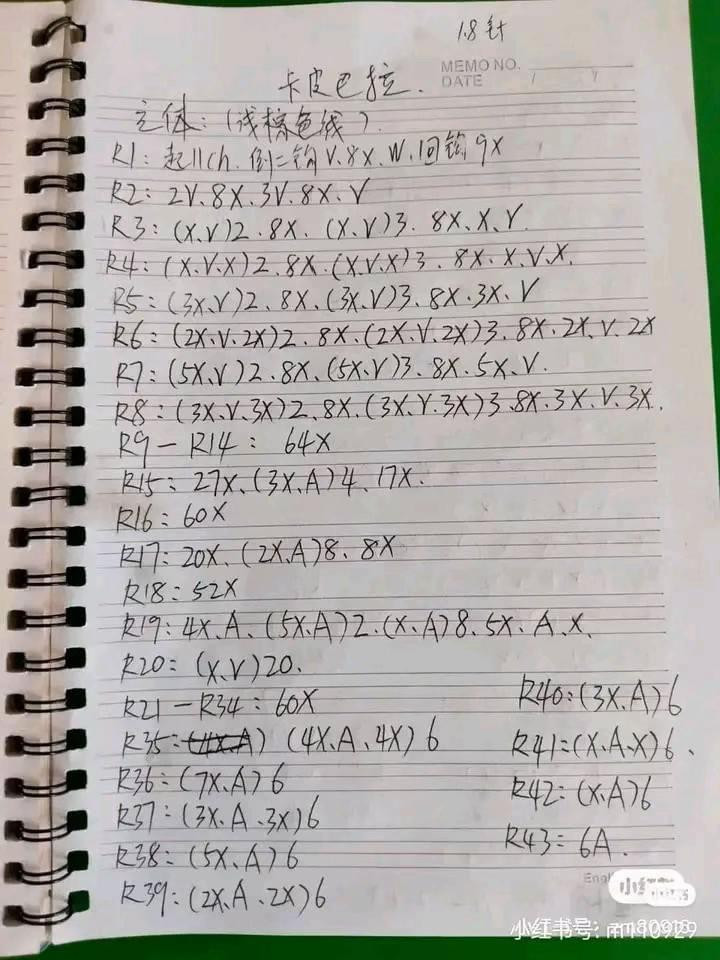 1.8针
MEMO NO.
DATE / /
卡皮巴拉.
主体:(浅棕色线).
R1: 起11ch. 倒二钩V.8X.W.回钩9X
R2: 2V.8X.3V.8X.V
R3: (X.V)2.8X.(X.V)3.8X.X.V.
R4: (X.V.X)2.8X.(X.V.X)3.8X.X.V.X.
R5: (3X.V)2.8X.(3X.V)3.8X.3X.V
R6: (2X.V.2X)2.8X.(2X.V.2X)3.8X.2X.V.2X
R7: (5X.V)2.8X.(5X.V)3.8X.5X.V.
R8: (3X.V.3X)2.8X.(3X.V.3X)3.8X.3X.V.3X.
R9-R14: 64X
R15: 27X.(3X.A)4.17X.
R16: 60X
R17: 20X.(2X.A)8.8X
R18: 52X
R19: 4X.A.(5X.A)2.(X.A)8.5X.A.X.
R20: (X.V)20.
R21-R34: 60X
R35: (4X.A) (4X.A.4X)6
R36: (7X.A)6
R37: (3X.A.3X)6
R38: (5X.A)6
R39: (2X.A.2X)6
R40:(3X.A)6
R41=(X.A.X)6.
R42=(X.A)6
R43=6A.
小红书
小红书号: